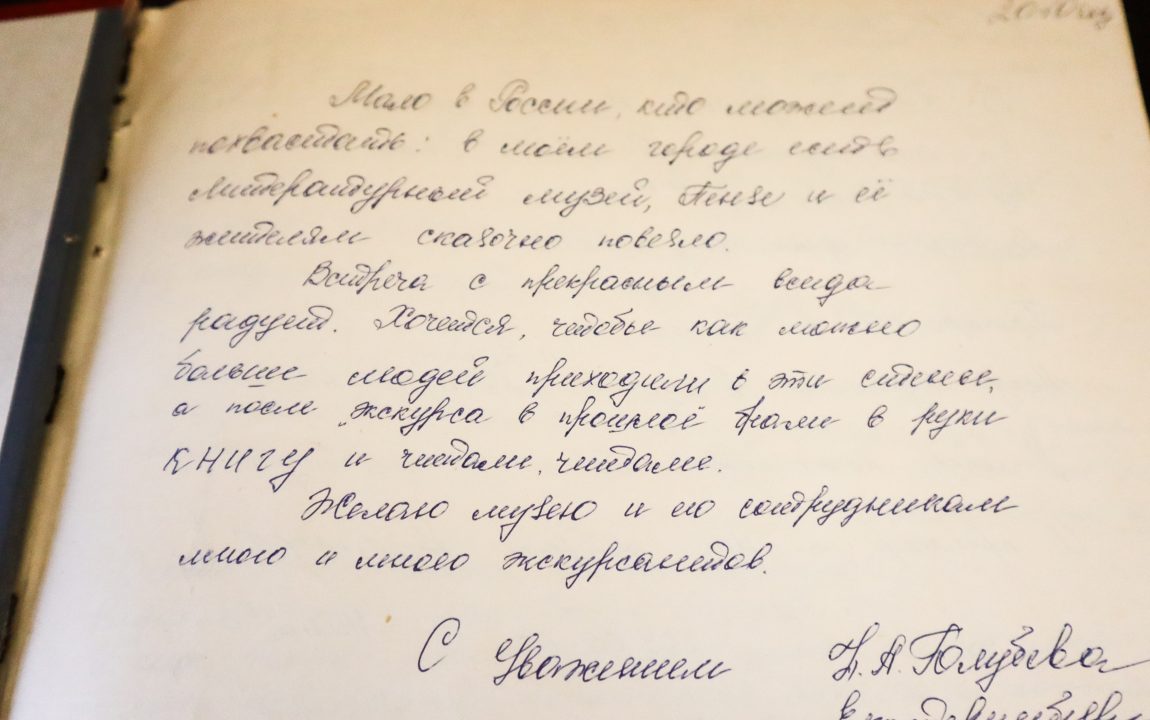 Мало в России, кто может
похвастать: в моём городе есть
Литературный музей, Пензе и её
жителям сказочно повезло.
Встреча с прекрасным всегда
радует. Хочется, чтобы как можно
больше людей приходили в эти стены,
а после экскурса в прошлоё брали в руки
КНИГУ и читали, читали.
Желаю музею и его сотрудникам
много и много экскурсантов.
С уважением
А. Голубева